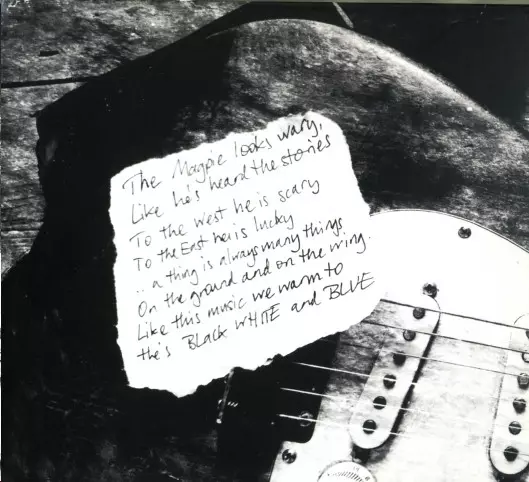 The Magpie looks wary,
Like he's heard the stories
To the west he is scary
To the East he is lucky
.. a thing is always many things
On the ground and on the wing.
Like this music we warm to
He's BLack WHITE and BLUE